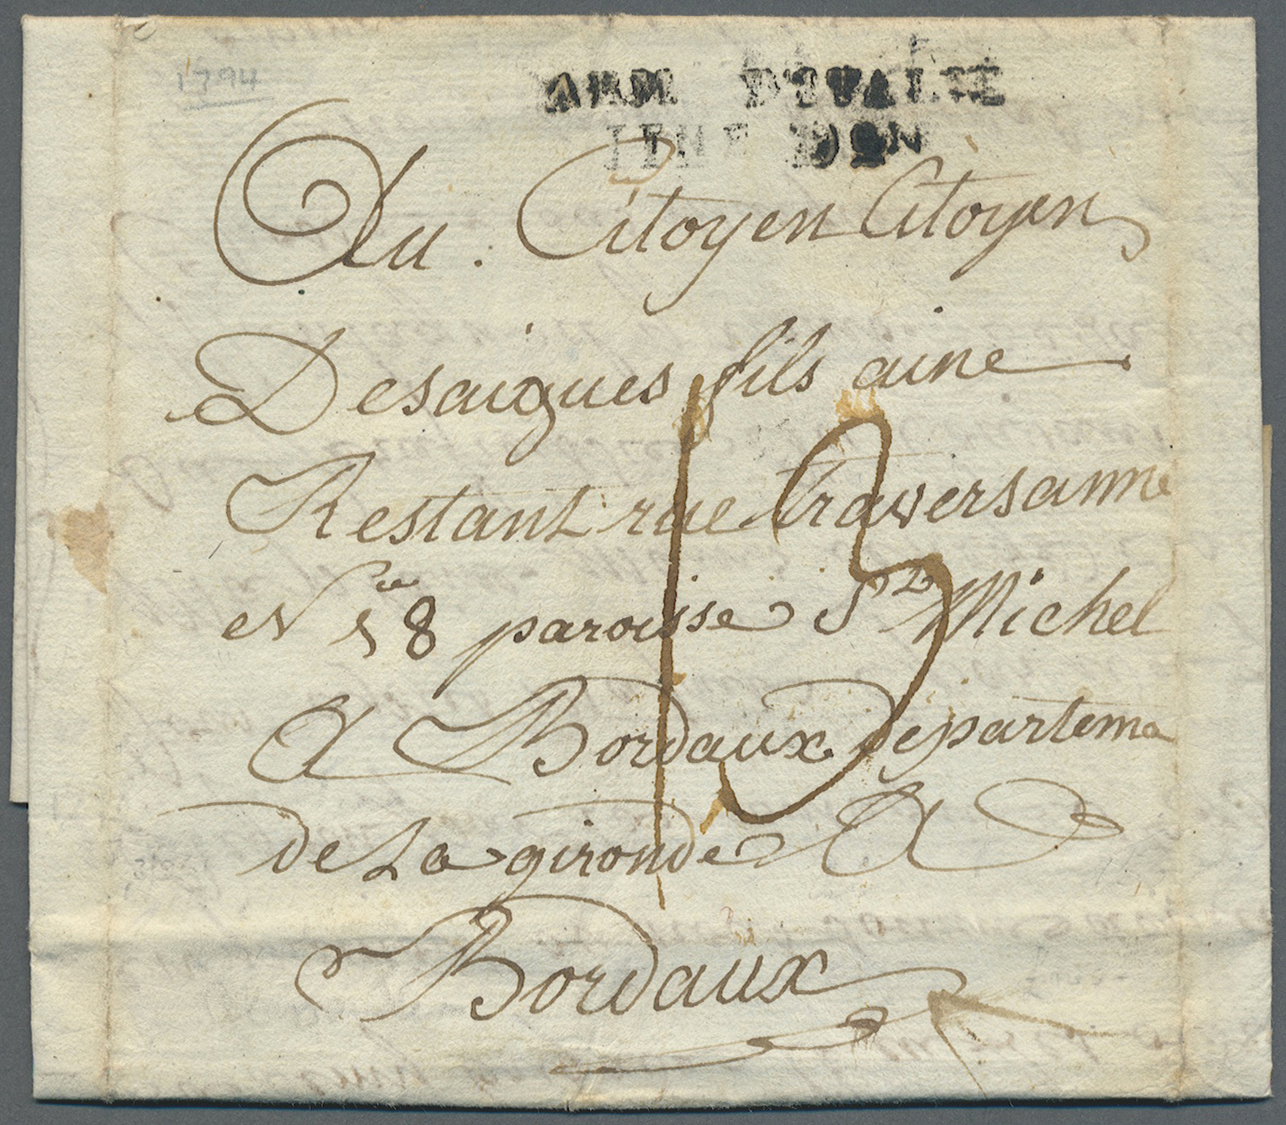 1794
ARM D'ITALIE
IIME DON
Au . Citoyen Citoyen
Desaigues fils aine
Restant rue traversanne
N 18 paroisse St Michel
A Bordaux Departema
de La gironde A
Bordaux
13